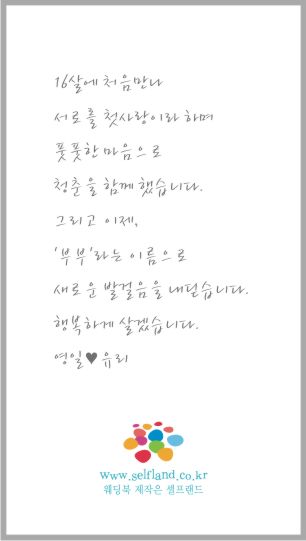 16살에 처음만나
서로를 첫사랑이라 하며
풋풋한 마음으로
청춘을 함께 했습니다.
그리고 이제,
'부부'라는 이름으로
새로운 발걸음을 내딛습니다.
행복하게 살겠습니다.
영일♥유리
www.selfland.co.kr
웨딩북 제작은 셀프랜드